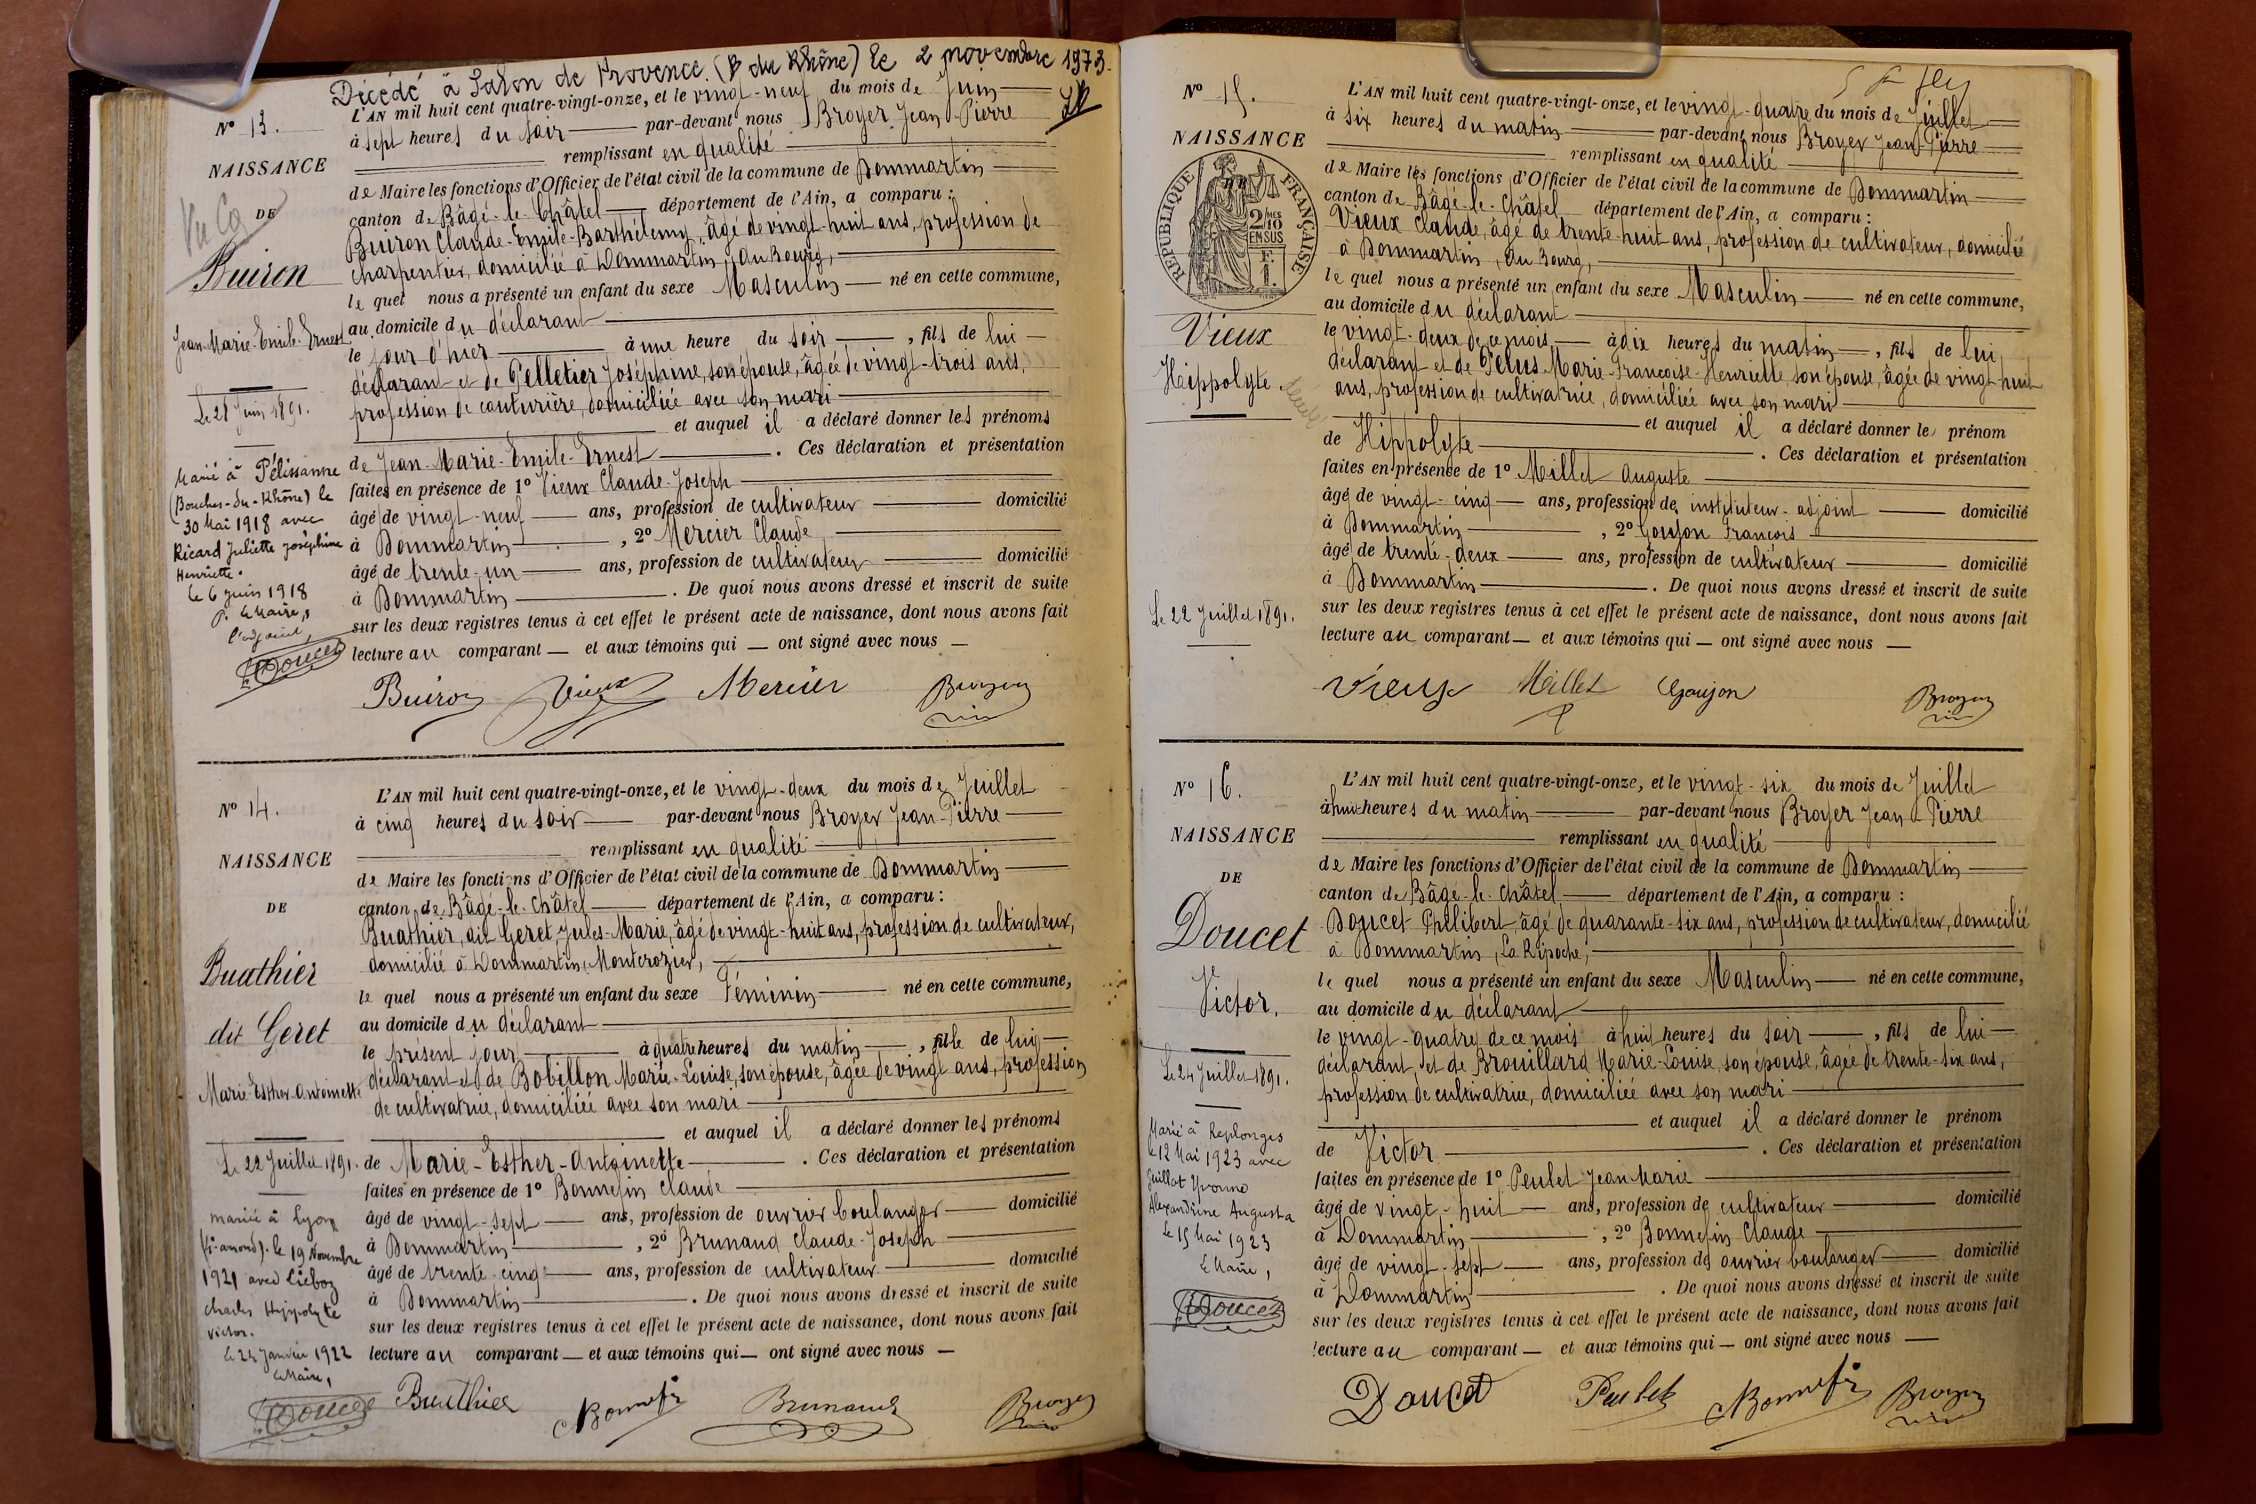 Décédé à Salon de Provence. (B du Rhône) le 2 novembre 1973.
N° 13.
NAISSANCE
DE
Buiron
Jean-Marie-Emile-Ernest
Le 28 Juin 1891.
Marié à Pélissanne
(Bouches-du-Rhône) le
30 Mai 1918 avec
Ricard Juliette Joséphine
Henriette.
le 6 juin 1918
P. le Maire,
l'adjoint,
Doucet
L'AN mil huit cent quatre-vingt-onze, et le vingt-neuf du mois de Juin
à sept heures du soir par-devant nous Broyer Jean-Pierre
remplissant en qualité
de Maire les fonctions d'Officier de l'état civil de la commune de Dommartin
canton de Bâgé-le-Châtel département de l'Ain, a comparu :
Buiron Claude-Emile-Barthélemy, âgé de vingt-huit ans, profession de
charpentier, domicilié à Dommartin, au Bourg,
le quel nous a présenté un enfant du sexe Masculin né en cette commune,
au domicile du déclarant
le jour d'hier à une heure du soir, fils de lui
déclarant et de Pelletier Joséphine, son épouse, âgée de vingt-trois ans,
profession de couturière, domiciliée avec son mari
et auquel il a déclaré donner les prénoms
de Jean-Marie-Emile-Ernest. Ces déclaration et présentation
faites en présence de 1° Vieux Claude-Joseph
âgé de vingt-neuf ans, profession de cultivateur domicilié
à Dommartin, 2° Mercier Claude
âgé de trente-un ans, profession de cultivateur domicilié
à Dommartin. De quoi nous avons dressé et inscrit de suite
sur les deux registres tenus à cet effet le présent acte de naissance, dont nous avons fait
lecture au comparant et aux témoins qui ont signé avec nous
Buiron Vieux Mercier Broyer
N° 14.
NAISSANCE
DE
Buathier
dit Geret
Marie-Esther-Antoinette
Le 22 Juillet 1891.
mariée à Lyon
le 19 Novembre
1921 avec
Charles Hyppolyte
Victor.
le 24 Janvier 1922
le Maire,
Doucet
L'AN mil huit cent quatre-vingt-onze, et le vingt-deux du mois de Juillet
à cinq heures du soir par-devant nous Broyer Jean-Pierre
remplissant en qualité
de Maire les fonctions d'Officier de l'état civil de la commune de Dommartin
canton de Bâgé-le-Châtel département de l'Ain, a comparu :
Buathier, dit Geret, Jules-Marie, âgé de vingt-huit ans, profession de cultivateur,
domicilié à Dommartin, Montcrozier,
le quel nous a présenté un enfant du sexe Féminin né en cette commune,
au domicile du déclarant
le présent jour à quatre heures du matin, fille de lui
déclarant et de Bobillon Marie-Louise, son épouse, âgée de vingt ans, profession
de cultivatrice, domiciliée avec son mari
et auquel il a déclaré donner les prénoms
de Marie-Esther-Antoinette. Ces déclaration et présentation
faites en présence de 1° Bonnefin Claude
âgé de vingt-sept ans, profession de ouvrier boulanger domicilié
à Dommartin, 2° Brunaud Claude-Joseph
âgé de trente-cinq ans, profession de cultivateur domicilié
à Dommartin. De quoi nous avons dressé et inscrit de suite
sur les deux registres tenus à cet effet le présent acte de naissance, dont nous avons fait
lecture au comparant et aux témoins qui ont signé avec nous
Buathier Bonnefin Brunaud Broyer
N° 15.
NAISSANCE
RÉPUBLIQUE FRANÇAISE
2/10 EN SUS
F. 1.
Vieux
Hippolyte
Le 22 Juillet 1891.
L'AN mil huit cent quatre-vingt-onze, et le vingt-quatre du mois de Juillet
à six heures du matin par-devant nous Broyer Jean-Pierre
remplissant en qualité
de Maire les fonctions d'Officier de l'état civil de la commune de Dommartin
canton de Bâgé-le-Châtel département de l'Ain, a comparu :
Vieux Claude, âgé de trente-huit ans, profession de cultivateur, domicilié
à Dommartin, au Bourg,
le quel nous a présenté un enfant du sexe Masculin né en cette commune,
au domicile du déclarant
le vingt-deux de ce mois à dix heures du matin, fils de lui
déclarant et de Pelus Marie-Françoise-Henriette, son épouse, âgée de vingt-huit
ans, profession de cultivatrice, domiciliée avec son mari
et auquel il a déclaré donner le prénom
de Hippolyte. Ces déclaration et présentation
faites en présence de 1° Millet Auguste
âgé de vingt-cinq ans, profession de instituteur-adjoint domicilié
à Dommartin, 2° Goujon François
âgé de trente-deux ans, profession de cultivateur domicilié
à Dommartin. De quoi nous avons dressé et inscrit de suite
sur les deux registres tenus à cet effet le présent acte de naissance, dont nous avons fait
lecture au comparant et aux témoins qui ont signé avec nous
Vieux Millet Goujon Broyer
N° 16.
NAISSANCE
DE
Doucet
Victor.
Le 24 Juillet 1891.
Marié à Replonges
le 12 Mai 1923 avec
Guillot Yvonne
Alexandrine Augusta
le 15 Mai 1923
le Maire,
Doucet
L'AN mil huit cent quatre-vingt-onze, et le vingt-six du mois de Juillet
à huit heures du matin par-devant nous Broyer Jean-Pierre
remplissant en qualité
de Maire les fonctions d'Officier de l'état civil de la commune de Dommartin
canton de Bâgé-le-Châtel département de l'Ain, a comparu :
Doucet Philibert, âgé de quarante-six ans, profession de cultivateur, domicilié
à Dommartin, La Ripoche,
le quel nous a présenté un enfant du sexe Masculin né en cette commune,
au domicile du déclarant
le vingt-quatre de ce mois à huit heures du soir, fils de lui
déclarant, et de Brouillard Marie-Louise, son épouse, âgée de trente-six ans,
profession de cultivatrice, domiciliée avec son mari
et auquel il a déclaré donner le prénom
de Victor. Ces déclaration et présentation
faites en présence de 1° Peulet Jean-Marie
âgé de vingt-huit ans, profession de cultivateur domicilié
à Dommartin, 2° Bonnefin Claude
âgé de vingt-sept ans, profession de ouvrier boulanger domicilié
à Dommartin. De quoi nous avons dressé et inscrit de suite
sur les deux registres tenus à cet effet le présent acte de naissance, dont nous avons fait
lecture au comparant et aux témoins qui ont signé avec nous
Doucet Peulet Bonnefin Broyer